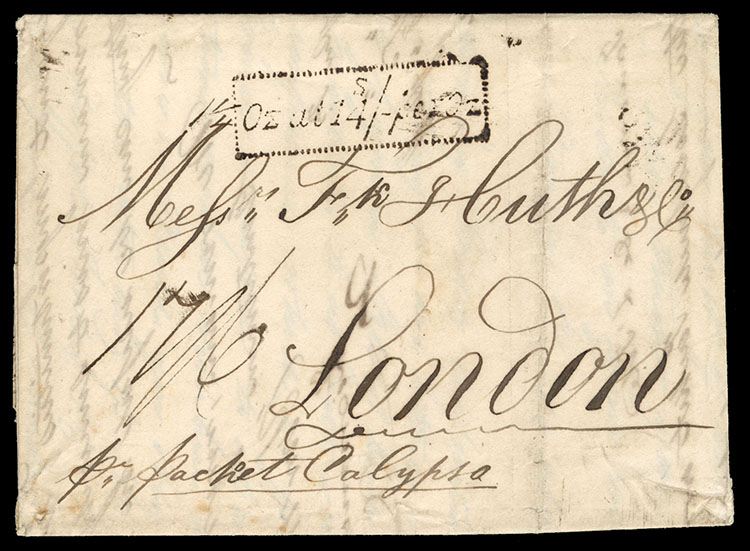 1¼ Oz at 14 S/- per Oz
Messrs Fk Huth & Co
17/6
London
pr packet Calypso